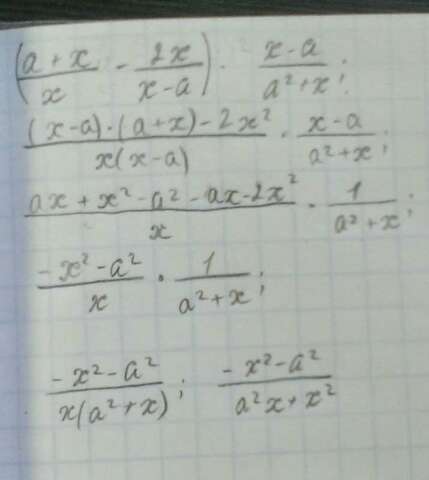 ((a+x)/x - 2x/(x-a)) · (x-a)/(a²+x);
((x-a)·(a+x)-2x²)/(x(x-a)) · (x-a)/(a²+x);
(ax+x²-a²-ax-2x²)/x · 1/(a²+x);
(-x²-a²)/x · 1/(a²+x);
(-x²-a²)/(x(a²+x)); (-x²-a²)/(a²x+x²)